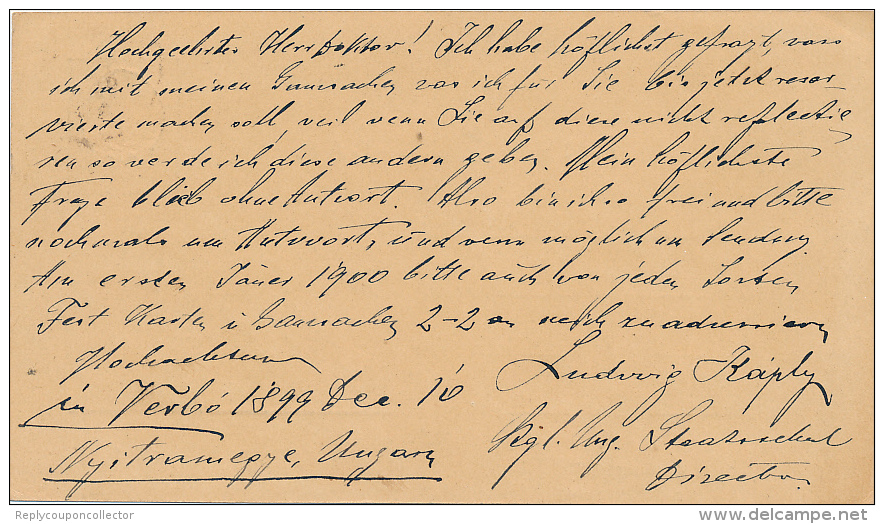 Hochgeehrter Herr Doktor! Ich habe höflichst gefragt, was
ich mit meinen Gansachen was ich für Sie bis jetzt reser-
vierte machen soll, weil wenn Sie auf diese nicht reflectie
ren so werde ich diese andern geben. Mein höflichste
Frage blieb ohne Antwort. Also bin ich so frei und bitte
nochmals um Antwort, und wenn möglich um Sendung.
Am ersten Jäner 1900 bitte auch von jeden Sorten
Fest Karten i Gansachen 2-2 an mich zu adressieren
Hochachtend
Ludwig Káply
in Verbó 1899 Dec. 10
Kgl. Ung. Staatsschul
Nyitramegye, Ungarn
Director
Replycouponcollector
www.delcampe.net